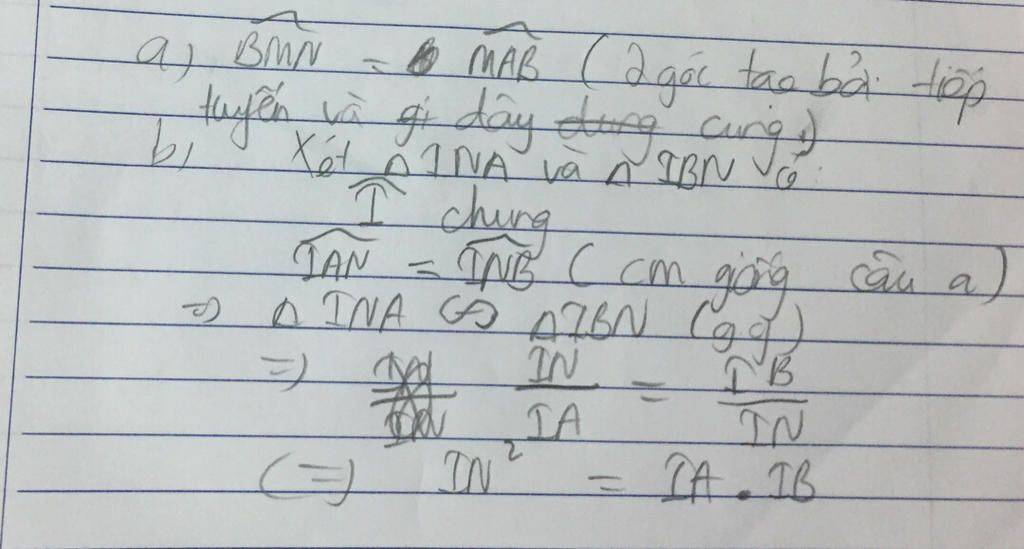 a) BMN = MAB (2 góc tạo bởi tiếp
tuyến và dây cung)
b, Xét △INA và △IBN có:
I chung
IAN = INB (cm giống câu a)
=> △INA ∽ △IBN (gg)
=> IN/IA = IB/IN
(=) IN² = IA . IB